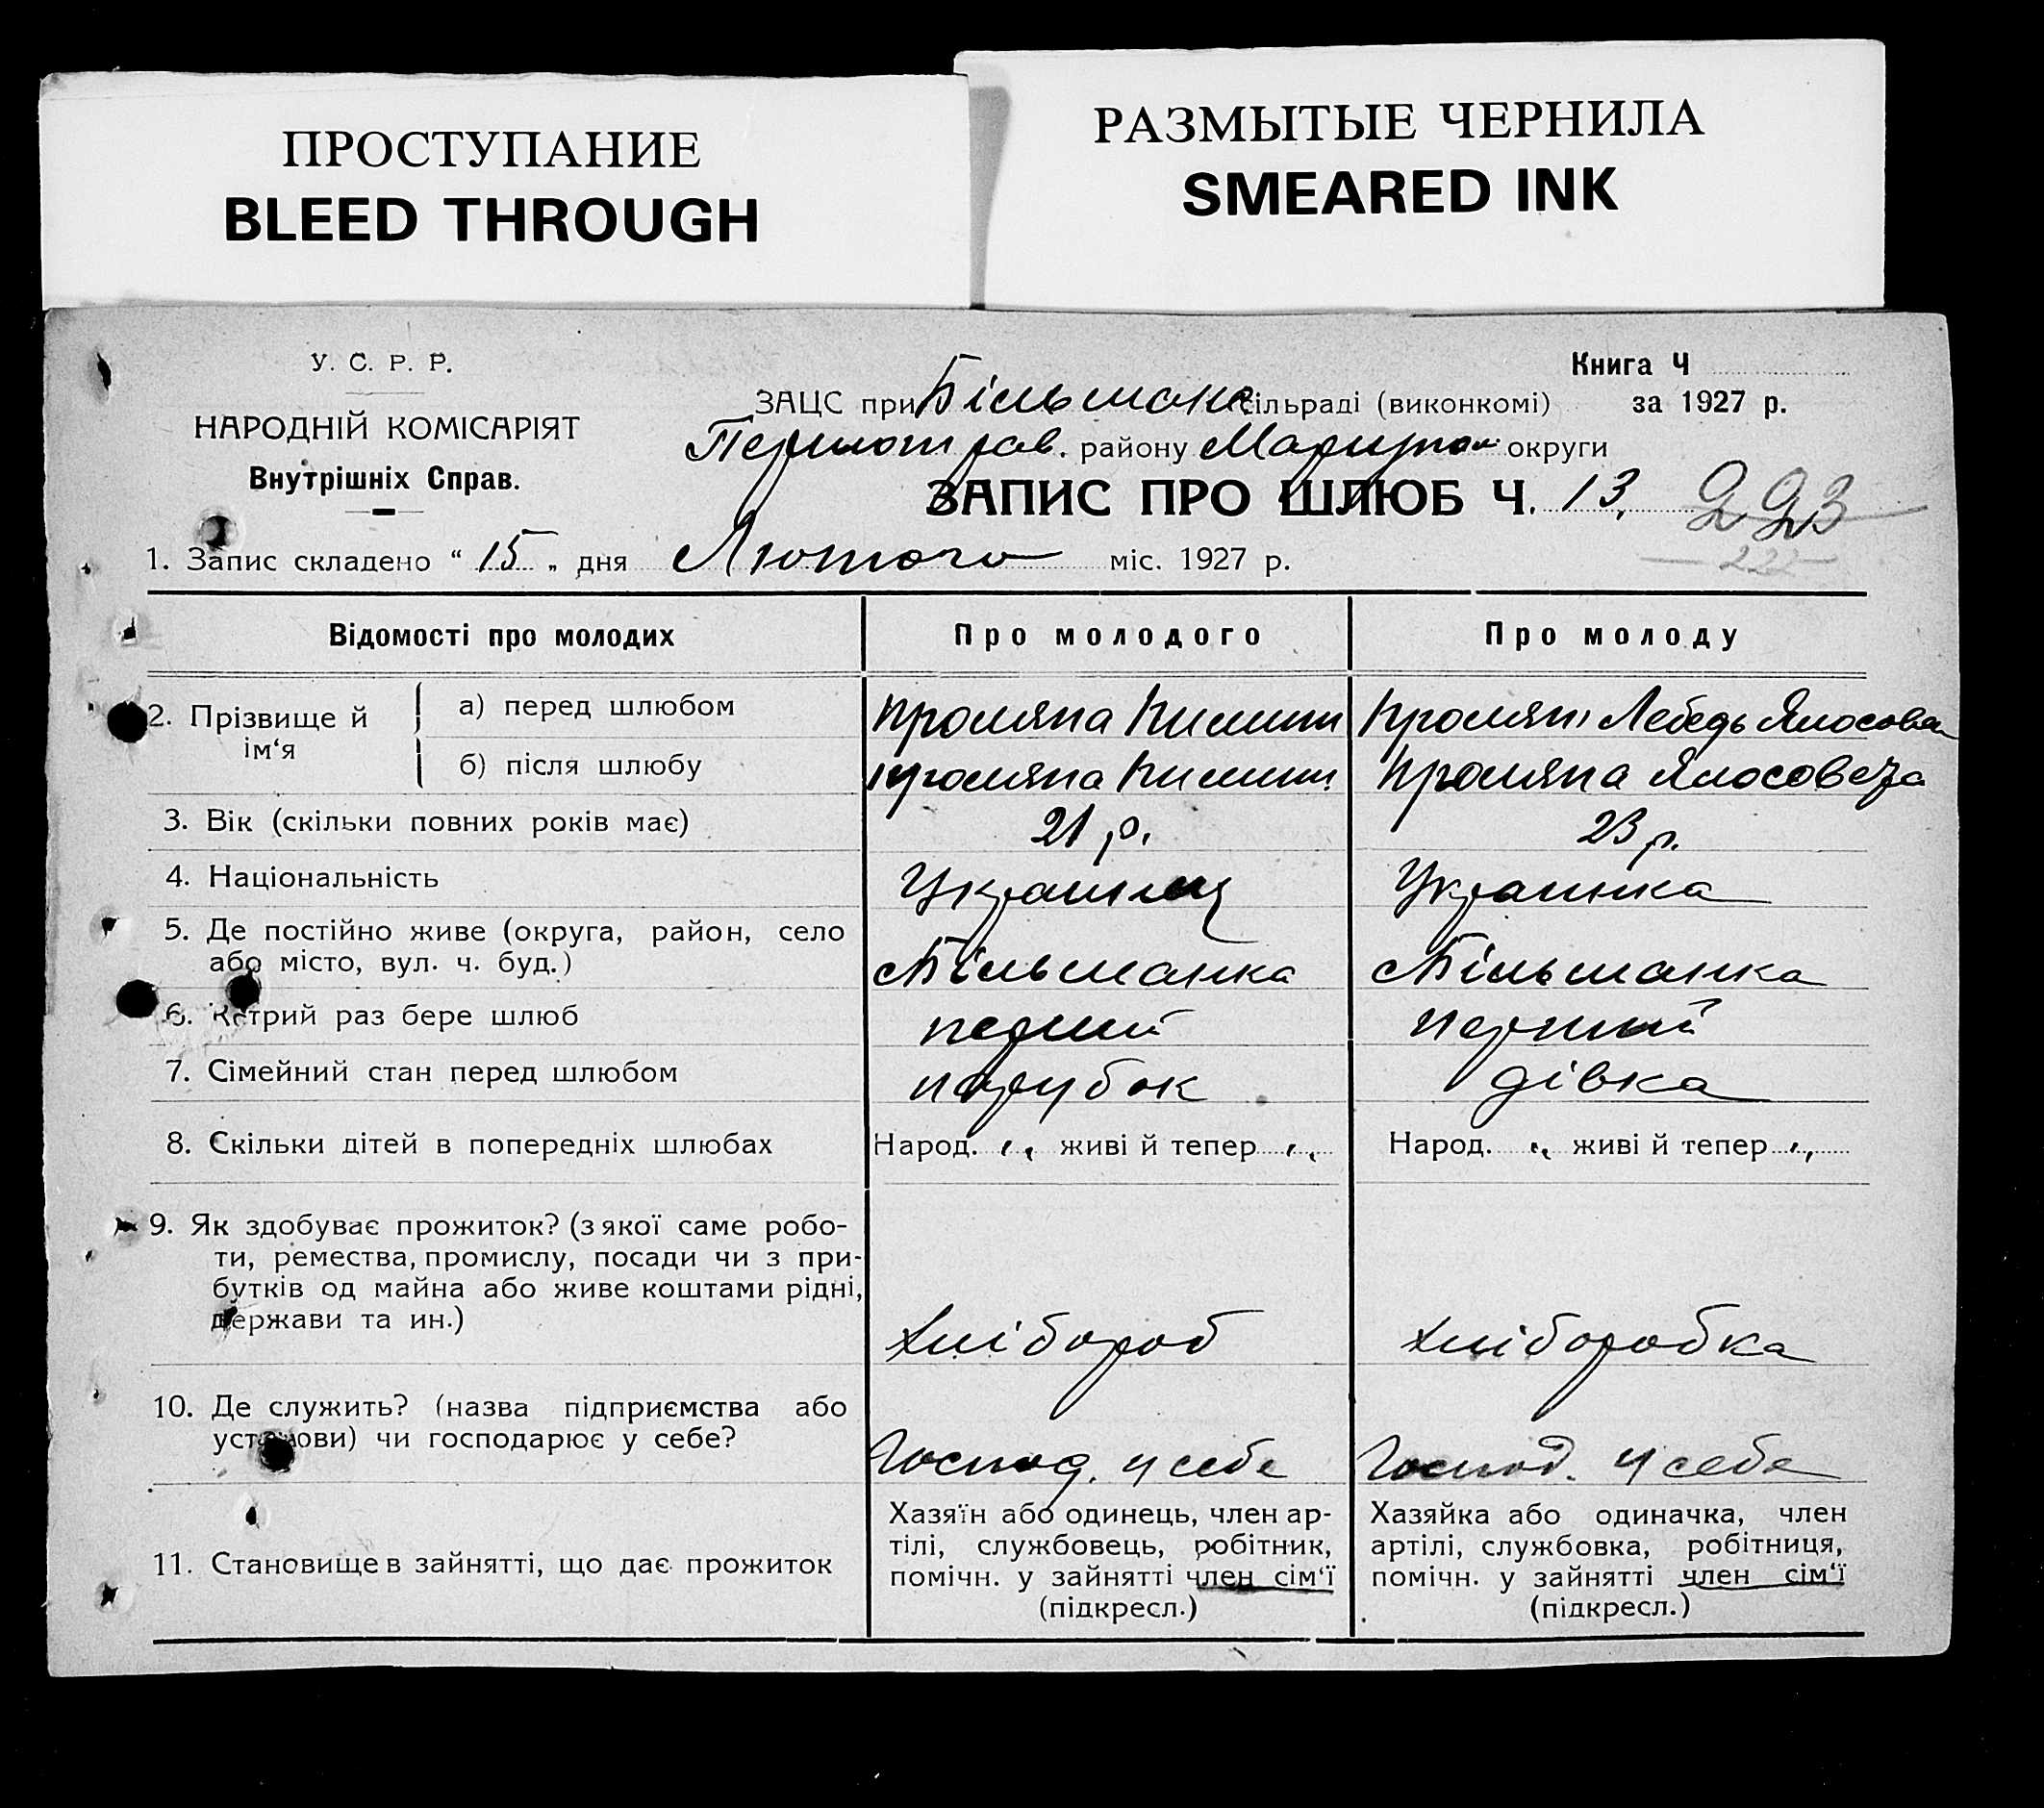 ПРОСТУПАНИЕ
BLEED THROUGH
РАЗМЫТЫЕ ЧЕРНИЛА
SMEARED INK
У. С. Р. Р.
НАРОДНІЙ КОМІСАРІЯТ
Внутрішніх Справ.
Книга Ч
за 1927 р.
ЗАЦС при Більманс сільраді (виконкомі)
району округи
ЗАПИС ПРО ШЛЮБ Ч. 13.
223
222
1. Запис складено “ 15 „ дня Лютого міс. 1927 р.
Відомості про молодих Про молодого Про молоду
2. Прізвище й ім‘я
а) перед шлюбом
б) після шлюбу
3. Вік (скільки повних років має) 21 р. 23 р.
4. Національність Украинец Украинка
5. Де постійно живе (округа, район, село
або місто, вул. ч. буд.) Більманка Більманка
6. Котрий раз бере шлюб перший перший
7. Сімейний стан перед шлюбом парубок дівка
8. Скільки дітей в попередніх шлюбах Народ. „ живі й тепер „ Народ. „ живі й тепер „
9. Як здобуває прожиток? (з якої саме робо-
ти, ремества, промислу, посади чи з при-
бутків од майна або живе коштами рідні,
держави та ин.) Хлібороб Хліборобка
10. Де служить? (назва підприємства або
установи) чи господарює у себе? Господ. у себе Господ. у себе
11. Становище в зайнятті, що дає прожиток
Хазяїн або одинець, член ар-
тілі, службовець, робітник,
помічн. у зайнятті член сім‘ї
(підкресл.)
Хазяйка або одиначка, член
артілі, службовка, робітниця,
помічн. у зайнятті член сім‘ї
(підкресл.)